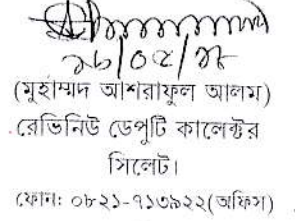 (মুহাম্মদ আশরাফুল আলম)
রেভিনিউ ডেপুটি কালেক্টর
সিলেট।
ফোন: ০৮২১-৭১৩৯২২(অফিস)